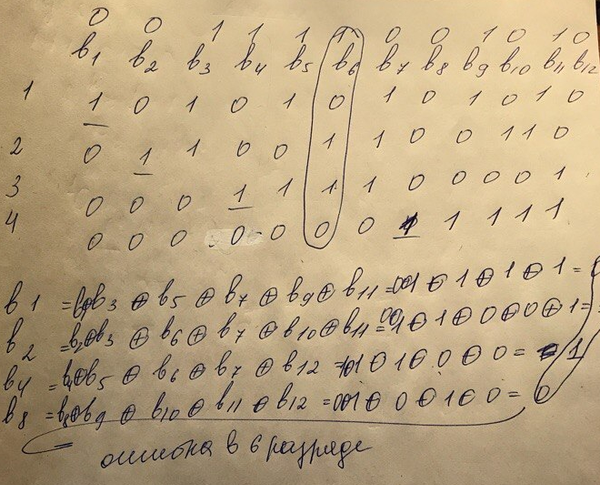 0 0 1 1 1 1 0 0 1 0 1 0
b1 b2 b3 b4 b5 b6 b7 b8 b9 b10 b11 b12
1 1 0 1 0 1 0 1 0 1 0 1 0
2 0 1 1 0 0 1 1 0 0 1 1 0
3 0 0 0 1 1 1 1 0 0 0 0 1
4 0 0 0 0 0 0 0 1 1 1 1 1
b1 = b3 ⊕ b5 ⊕ b7 ⊕ b9 ⊕ b11 = 1 ⊕ 1 ⊕ 1 =
b2 = b2⊕b3 ⊕ b6 ⊕ b7 ⊕ b10 ⊕ b11 = 1 ⊕ 0 ⊕ 0 ⊕ 1 =
b4 = b5 ⊕ b6 ⊕ b7 ⊕ b12 = 1 ⊕ 0 ⊕ 0 = 1
b8 = b8⊕b9 ⊕ b10 ⊕ b11 ⊕ b12 = 0 ⊕ 1 ⊕ 0 = 0
= ошибка в 6 разряде